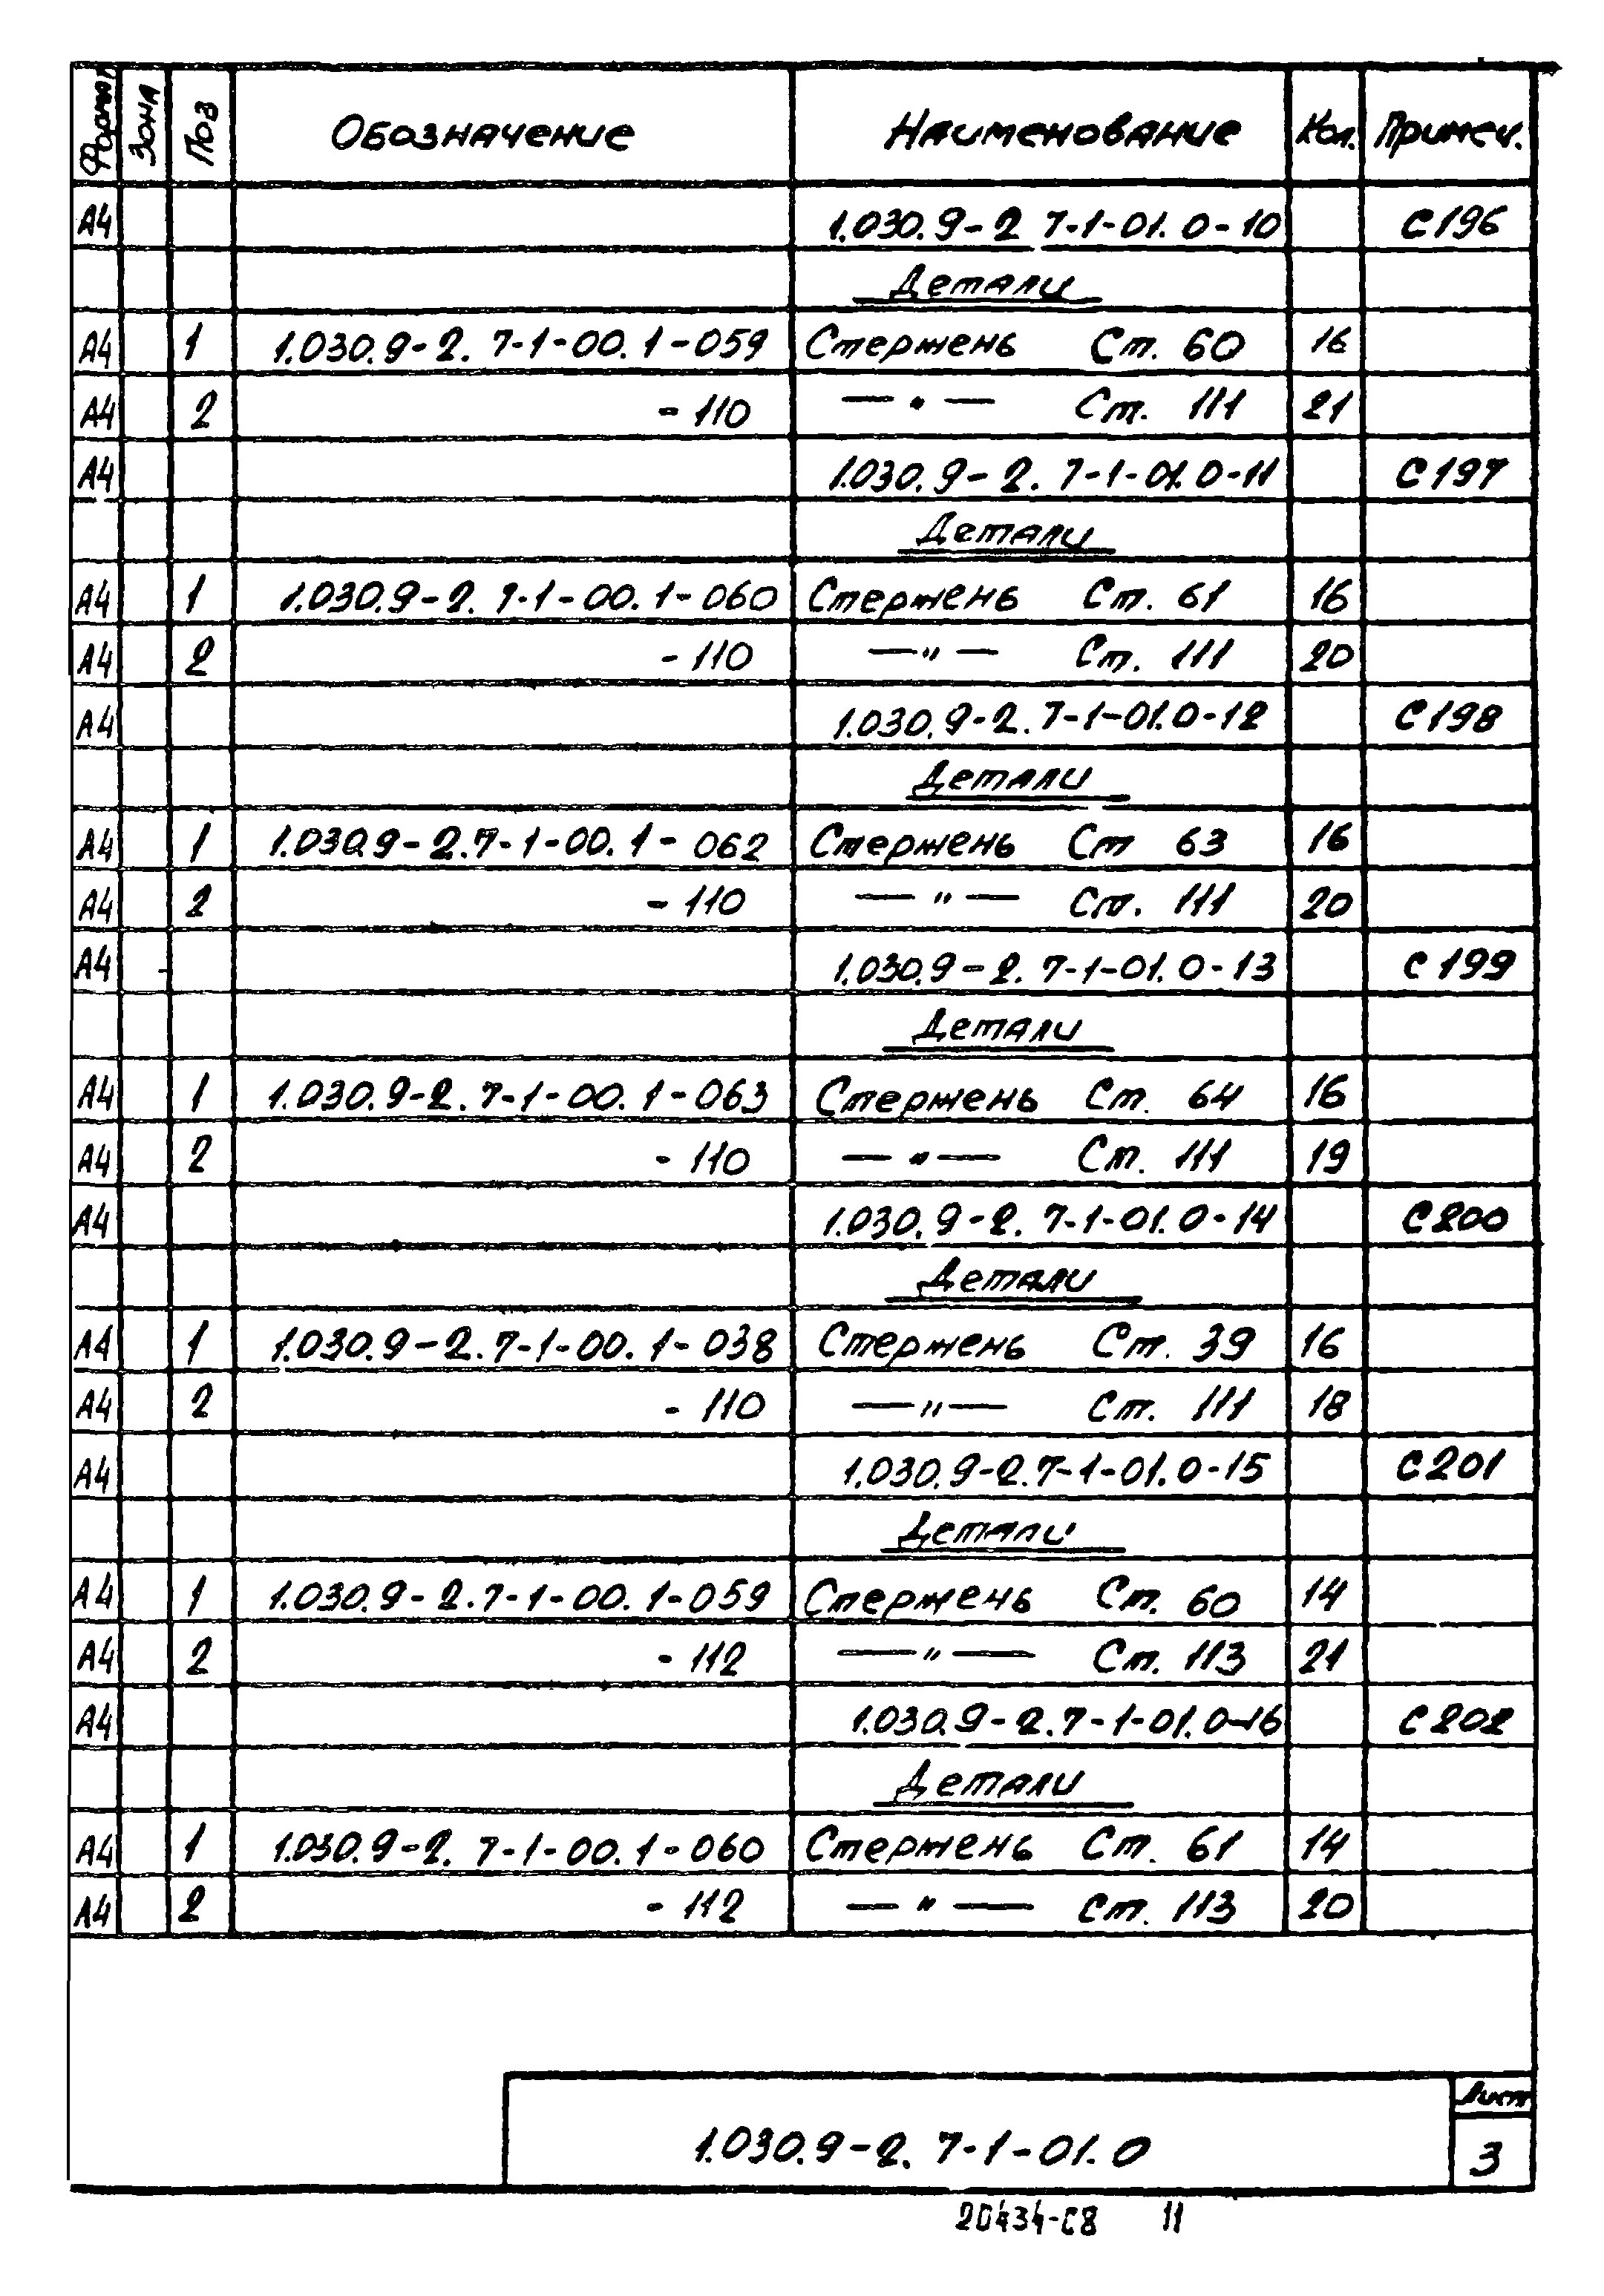 Формат Зона Поз Обозначение Наименование Кол. Примеч.
А4 1.030.9-2 7-1-01.0-10 С196
Детали
А4 1 1.030.9-2. 7-1-00.1-059 Стержень Ст. 60 16
А4 2 -110 — " — Ст. 111 21
А4 1.030.9-2. 7-1-01.0-11 С197
Детали
А4 1 1.030.9-2. 7-1-00.1-060 Стержень Ст. 61 16
А4 2 -110 — " — Ст. 111 20
А4 1.030.9-2. 7-1-01.0-12 С198
Детали
А4 1 1.030.9-2.7-1-00.1-062 Стержень Ст 63 16
А4 2 -110 — " — Ст. 111 20
А4 1.030.9-2. 7-1-01.0-13 С199
Детали
А4 1 1.030.9-2. 7-1-00.1-063 Стержень Ст. 64 16
А4 2 -110 — " — Ст. 111 19
А4 1.030.9-2. 7-1-01.0-14 С200
Детали
А4 1 1.030.9-2.7-1-00.1-038 Стержень Ст. 39 16
А4 2 -110 — " — Ст. 111 18
А4 1.030.9-2.7-1-01.0-15 С201
Детали
А4 1 1.030.9-2.7-1-00.1-059 Стержень Ст. 60 14
А4 2 -112 — " — Ст. 113 21
А4 1.030.9-2.7-1-01.0-16 С202
Детали
А4 1 1.030.9-2. 7-1-00.1-060 Стержень Ст. 61 14
А4 2 -112 — " — Ст. 113 20
Лист
1.030.9-2. 7-1-01.0 3
20434-С8 11